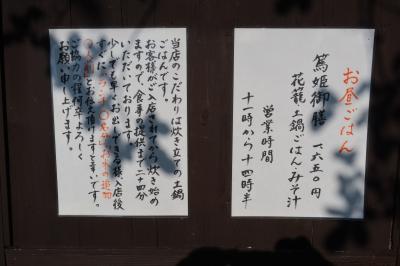 お昼ごはん
篤姫御膳 一六五〇円
花籠 土鍋ごはん・みそ汁
営業時間
十一時から十四時半
当店のこだわりは炊き立ての土鍋
ごはんです。
お客様がご入店されてから炊き始め
ますので、食事の提供まで二十四分
いただいております。
少しでも早くお出しできる様、入店後
すぐに
〇人前とお伝え頂けますと幸いです。
ご協力の程何卒よろしく
お願い申し上げます。